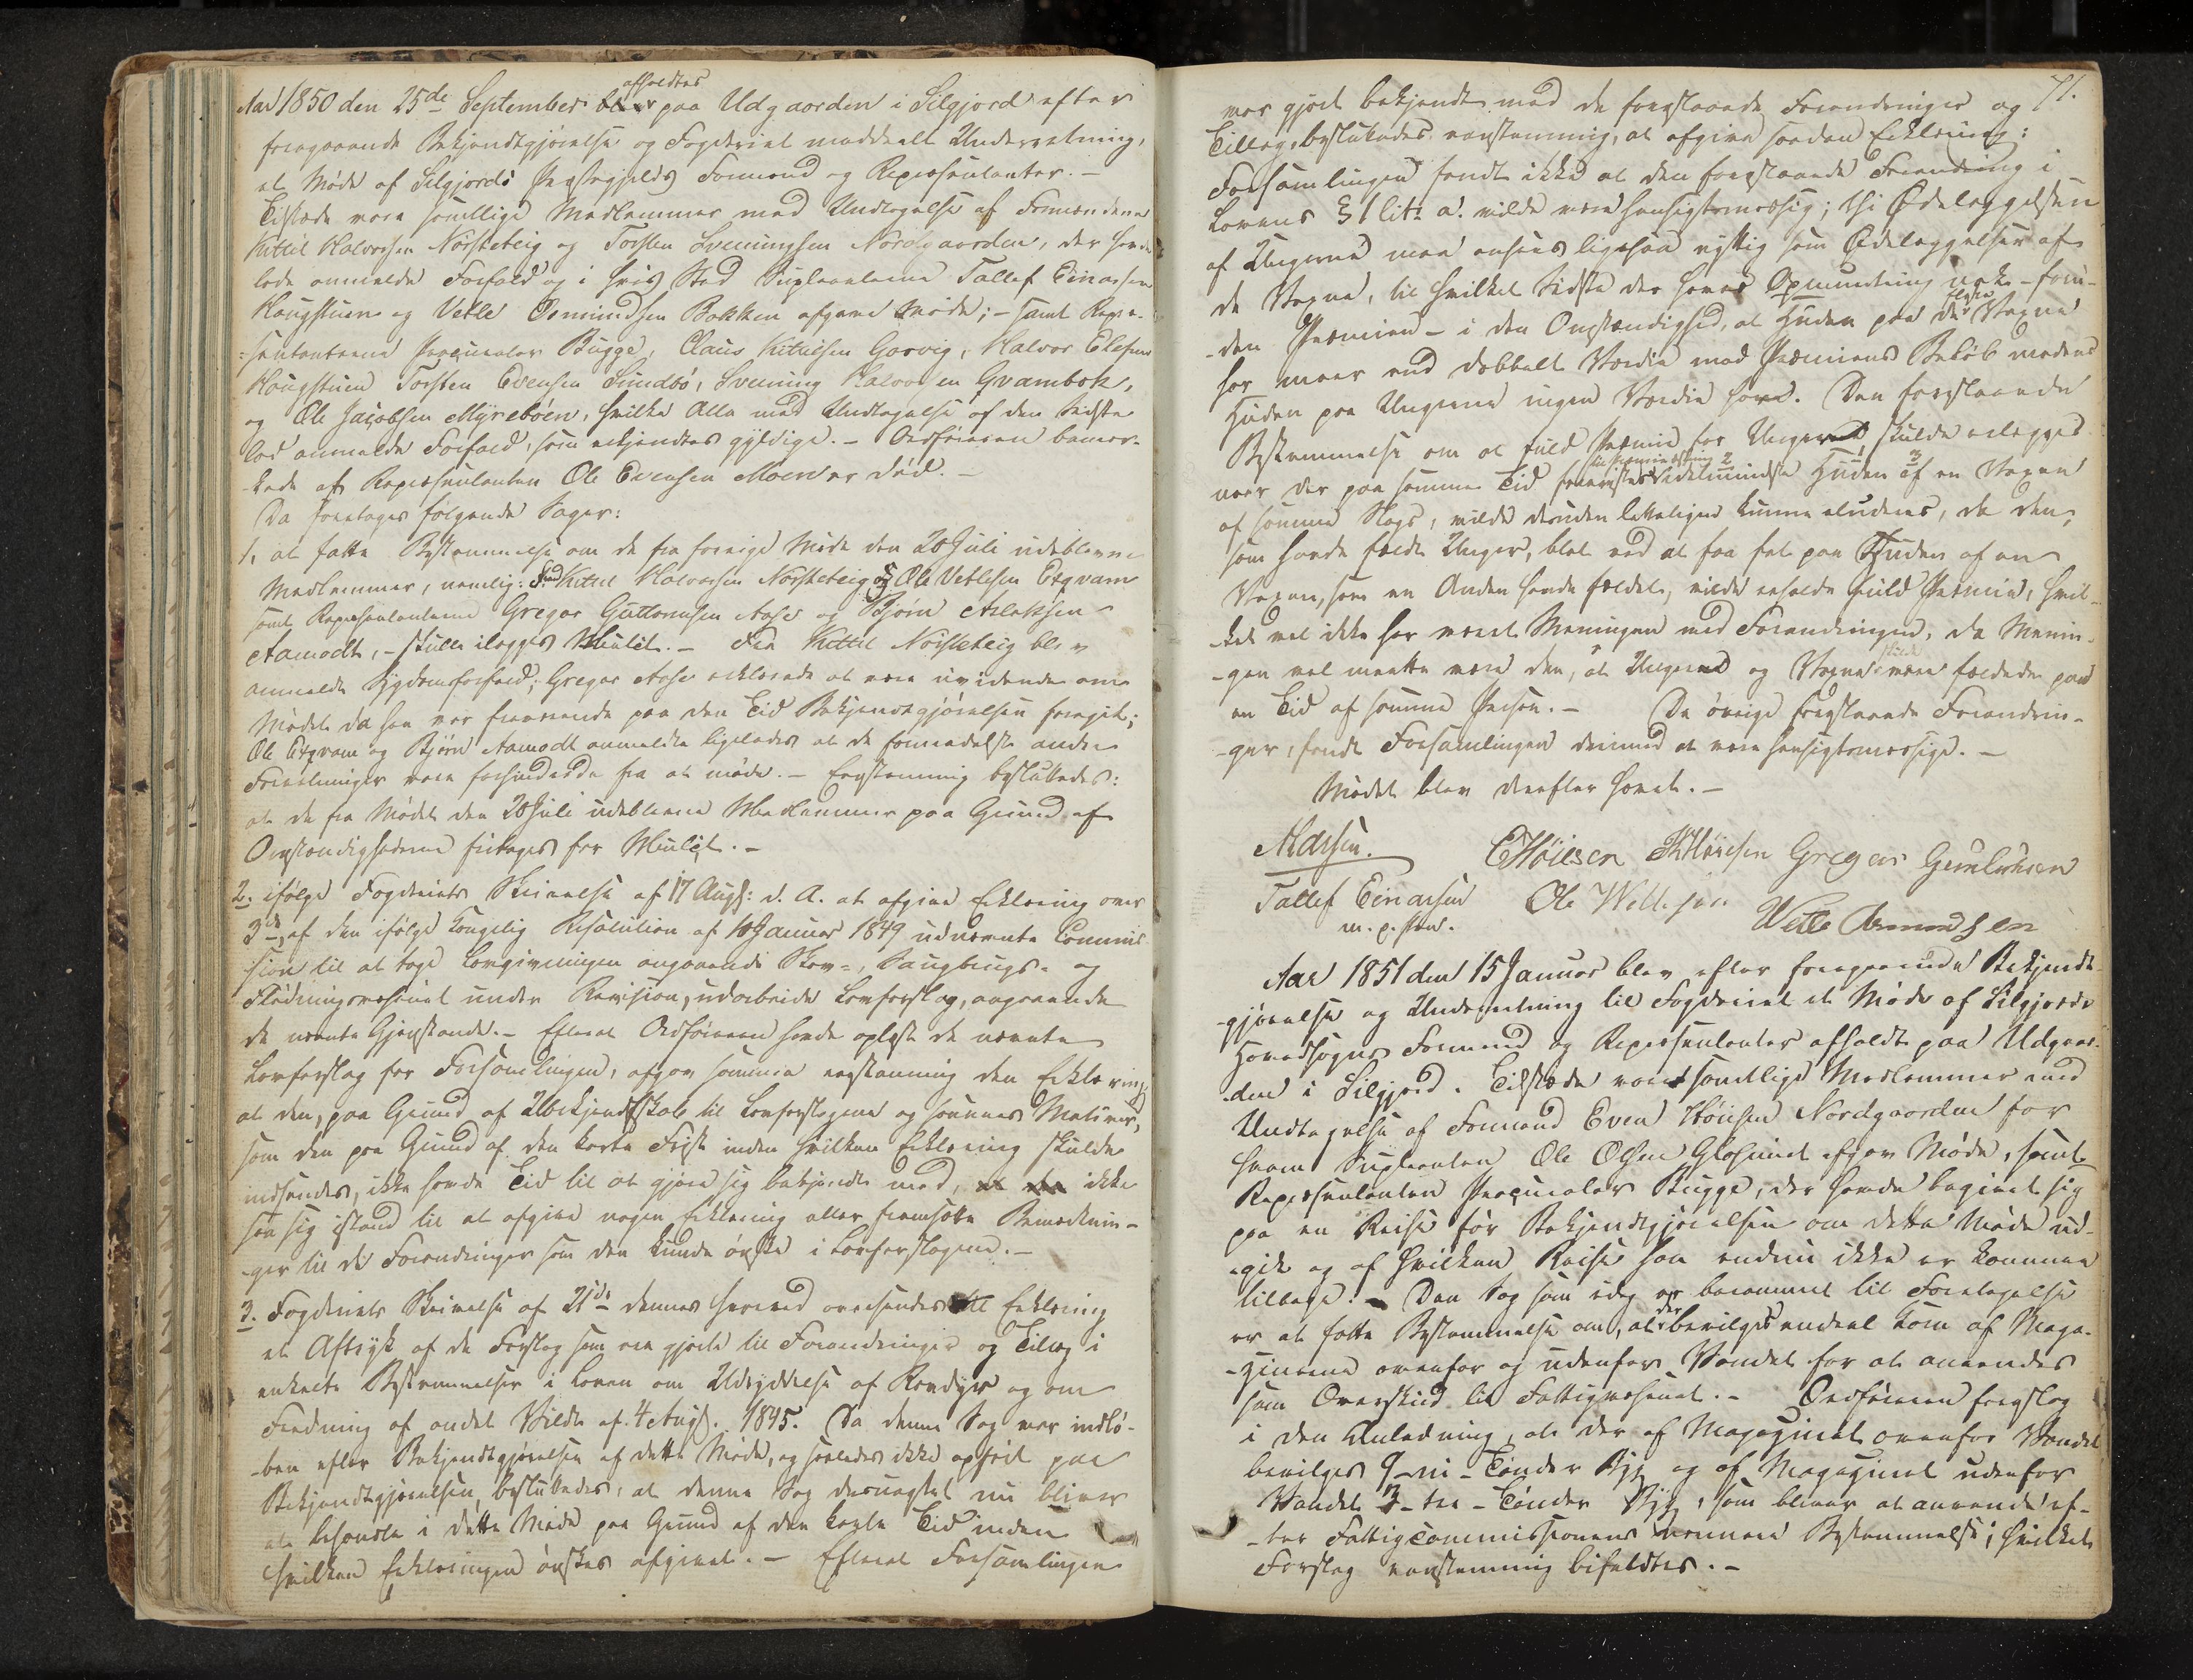 Aar 1850 den 25de September blev afholdtes paa Udgaarden i Silgjord efter
foregaaende Bekjendtgjørelse og Fogderiet meddeelt Underretning,
et Møde af Silgjords Præstegjelds Formænd og Repræsentanter. –
Tilstede vare samtlige Medlemmer med Undtagelse af Formændene
Kittil Halvorsen Nørsteteig og Torsten Sveinungsen Nordgaarden, der havde
lade anmelde Forfald og i hvis Sted Supleanterne Tallef Einarsen
Haugstuen og Vetle Osmundsen Bakken afgave Møde; – samt Repræ-
sentanterne Procurator Bugge, Claus Kittilsen Garvig, Halvor Olesen
Haugstuen Torsten Evensen Sundbö, Sveinung Halvorsen Qvambek,
og Ole Jacobsen Myrebøen, hvilke Alle med Undtagelse af den Sidste
lod anmelde Forfald, som erkjendtes gyldige. – Ordføreren bemær-
kede at Repræsentanten Ole Evensen Moen er død. –
Da foretages følgende Sager:
1, at fatte Bestemmelse om de fra forrige Møde den 20 Juli udeblevne
Medlemmer, nemlig: Kittil Halvorsen Nørsteteig og Ole Vetlesen Exqvam
samt Repræsentanterne Gregar Guttormsen Aase og Björn Aslaksen
Aamodt, – skulle ilægges Mulct. – For Kittil Nørsteteig blev
anmeldt Sygdomsforfald; Gregar Aase erklærede at være uvidende om
Mødet da han var fraværende paa den Tid Bekjendtgjørelsen foregik;
Ole Exqvam og Björn Aamodt anmeldte ligeledes at de formedelst andre
Forretninger vare forhindrede fra at møde. – Eenstemmig besluttedes:
at de fra Mødet den 20 Juli udeblevne Medlemmer paa Grund af
Omstændighederne fritages for Mulct. –
2. ifølge Fogderiets Skrivelse af 17 Augs: d. A. at afgive Erklæring over
3de, af den ifølge kongelig Resolution af 10 Januar 1849 udnævnte Commis-
sion til at tage Lovgivningen angaaende Skov-, Saugbrugs- og
Flødningsvæsenet under Revision, udarbeide Lovforslag, angaaende
de nævnte Gjenstande. – Efterat Ordføreren havde oplæst de nævnte
Lovforslag for Forsamlingen, afgav samme eenstemmig den Erklæring,
at den, paa Grund af Ubekjendtskab til Lovforslagene og sammes Motiver,
som den paa Grund af den korte Frist inden hvilken Erklæring skulde
indsendes, ikke havde Tid til at gjøre sig bekjendt med, ikke
saa sig istand til at afgive nogen Erklæring eller fremsætte Bemærknin-
ger til de Forandringer som den kunde ønske i Lovforslagene. –
3. Fogderiets Skrivelse af 21de dennes hvorved oversendes til Erklæring
et Aftryk af de Forslag som ere gjorte til Forandringer og Tillæg i
enkelte Bestemmelser i Loven om Udryddelse af Rovdyr og om
Fredning af andet Vildt af 4 Augs. 1845. Da denne Sag var indlø-
ben efter Bekjendtgjørelsen af dette Møde, og saaledes ikke opført paa
Bekjendtgjørelsen, besluttedes, at denne Sag desuagtet nu bliver
at behandle i dette Møde paa Grund af den korte Tid inden
hvilken Erklæringen ønskes afgivet. – Efterat Forsamlingen
71.
var gjort bekjendt med de foreslaaede Forandringer og
Tillæg, besluttedes eenstemmig, at afgive saadan Erklæring:
Forsamlingen fandt ikke at den foreslaaede Forandring i
Lovens § 1 litr. a. vilde være hensigtsmæssig; thi Ødeleggelsen
af Ungerne maa ansees ligesaa nyttig som Ødeleggelsen af
de Voxne, til hvilket Sidste der haves Opmuntring nok – foru-
den Præmien – i den Omstændighed, at Huden paa de fleste Voxne
har meer end dobbelt Værdie mod Præmiens Beløb medens
Huden paa Ungerne ingen Værdie have. Den foreslaaede
Bestemmelse om at fuld Præmie for Ungerne skulde erlægges
naar der paa samme Tid forevistes idetmindste Huden af en Voxen
af samme Slags, vilde desuden letteligen kunne eluderes, da den,
som havde fældt Unger, blot ved at faa fat paa Huden af en
Voxen, som en Anden havde fældet, vilde erholde fuld Præmie, hvil-
ket vel ikke har været Meningen med Forandringen, da Menin-
gen vel maatte være den, at Ungerne og Voxne skulde være fældede paa
en Tid af samme Person. – De øvrige foreslaaede Forandrin-
ger, fandt Forsamlingen derimod at være hensigtsmæssige. –
Mødet blev derefter hævet. –
Tallef Einarsen
m. p. Pen.
Ole Vetlesen
Gregar Guttormsen
Vetle Osmundsen
Aar 1851 den 15 Januar blev efter foregaaende Bekjendt-
gjørelse og Underretning til Fogderiet et Møde af Silgjords
Hovedsogns Formænd og Repræsentanter afholdt paa Udgaar-
den i Silgjord. Tilstede vare samtlige Medlemmer med
Undtagelse af Formand Even Høiesen Nordgaarden for
hvem Supleanten Ole Olsen Glosimot afgav Møde, samt
Repræsentanten Procurator Bugge, der havde begivet sig
paa en Reise før Bekjendtgjørelsen om dette Møde ud-
gik og af hvilken Reise han endnu ikke er kommen
tilbage. – Den Sag som idag er berammet til Foretagelse
er at fatte Bestemmelse om, at der bevilges endeel Korn af Maga-
zinerne ovenfor og udenfor Vandet for at anvendes
som Overskud til Fattigvæsenet. – Ordføreren foreslog
i den Anledning, at der af Magazinet ovenfor Vandet
bevilges 9 – ni – Tønder Byg og af Magazinet udenfor
Vandet 3 – tre – Tønder Byg, som bliver at anvende ef-
ter Fattigcommissionens nærmere Bestemmelse; hvilket
Forslag eenstemmig bifaldtes. –